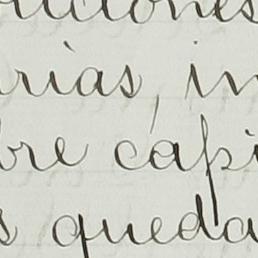 ciones
rias, in
bre cápi
s queda